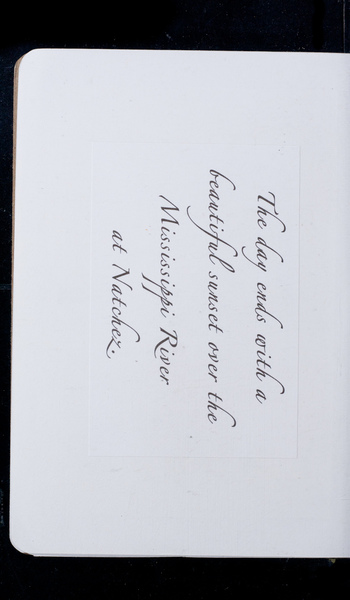 The day ends with a
beautiful sunset over the
Mississippi River
at Natchez.